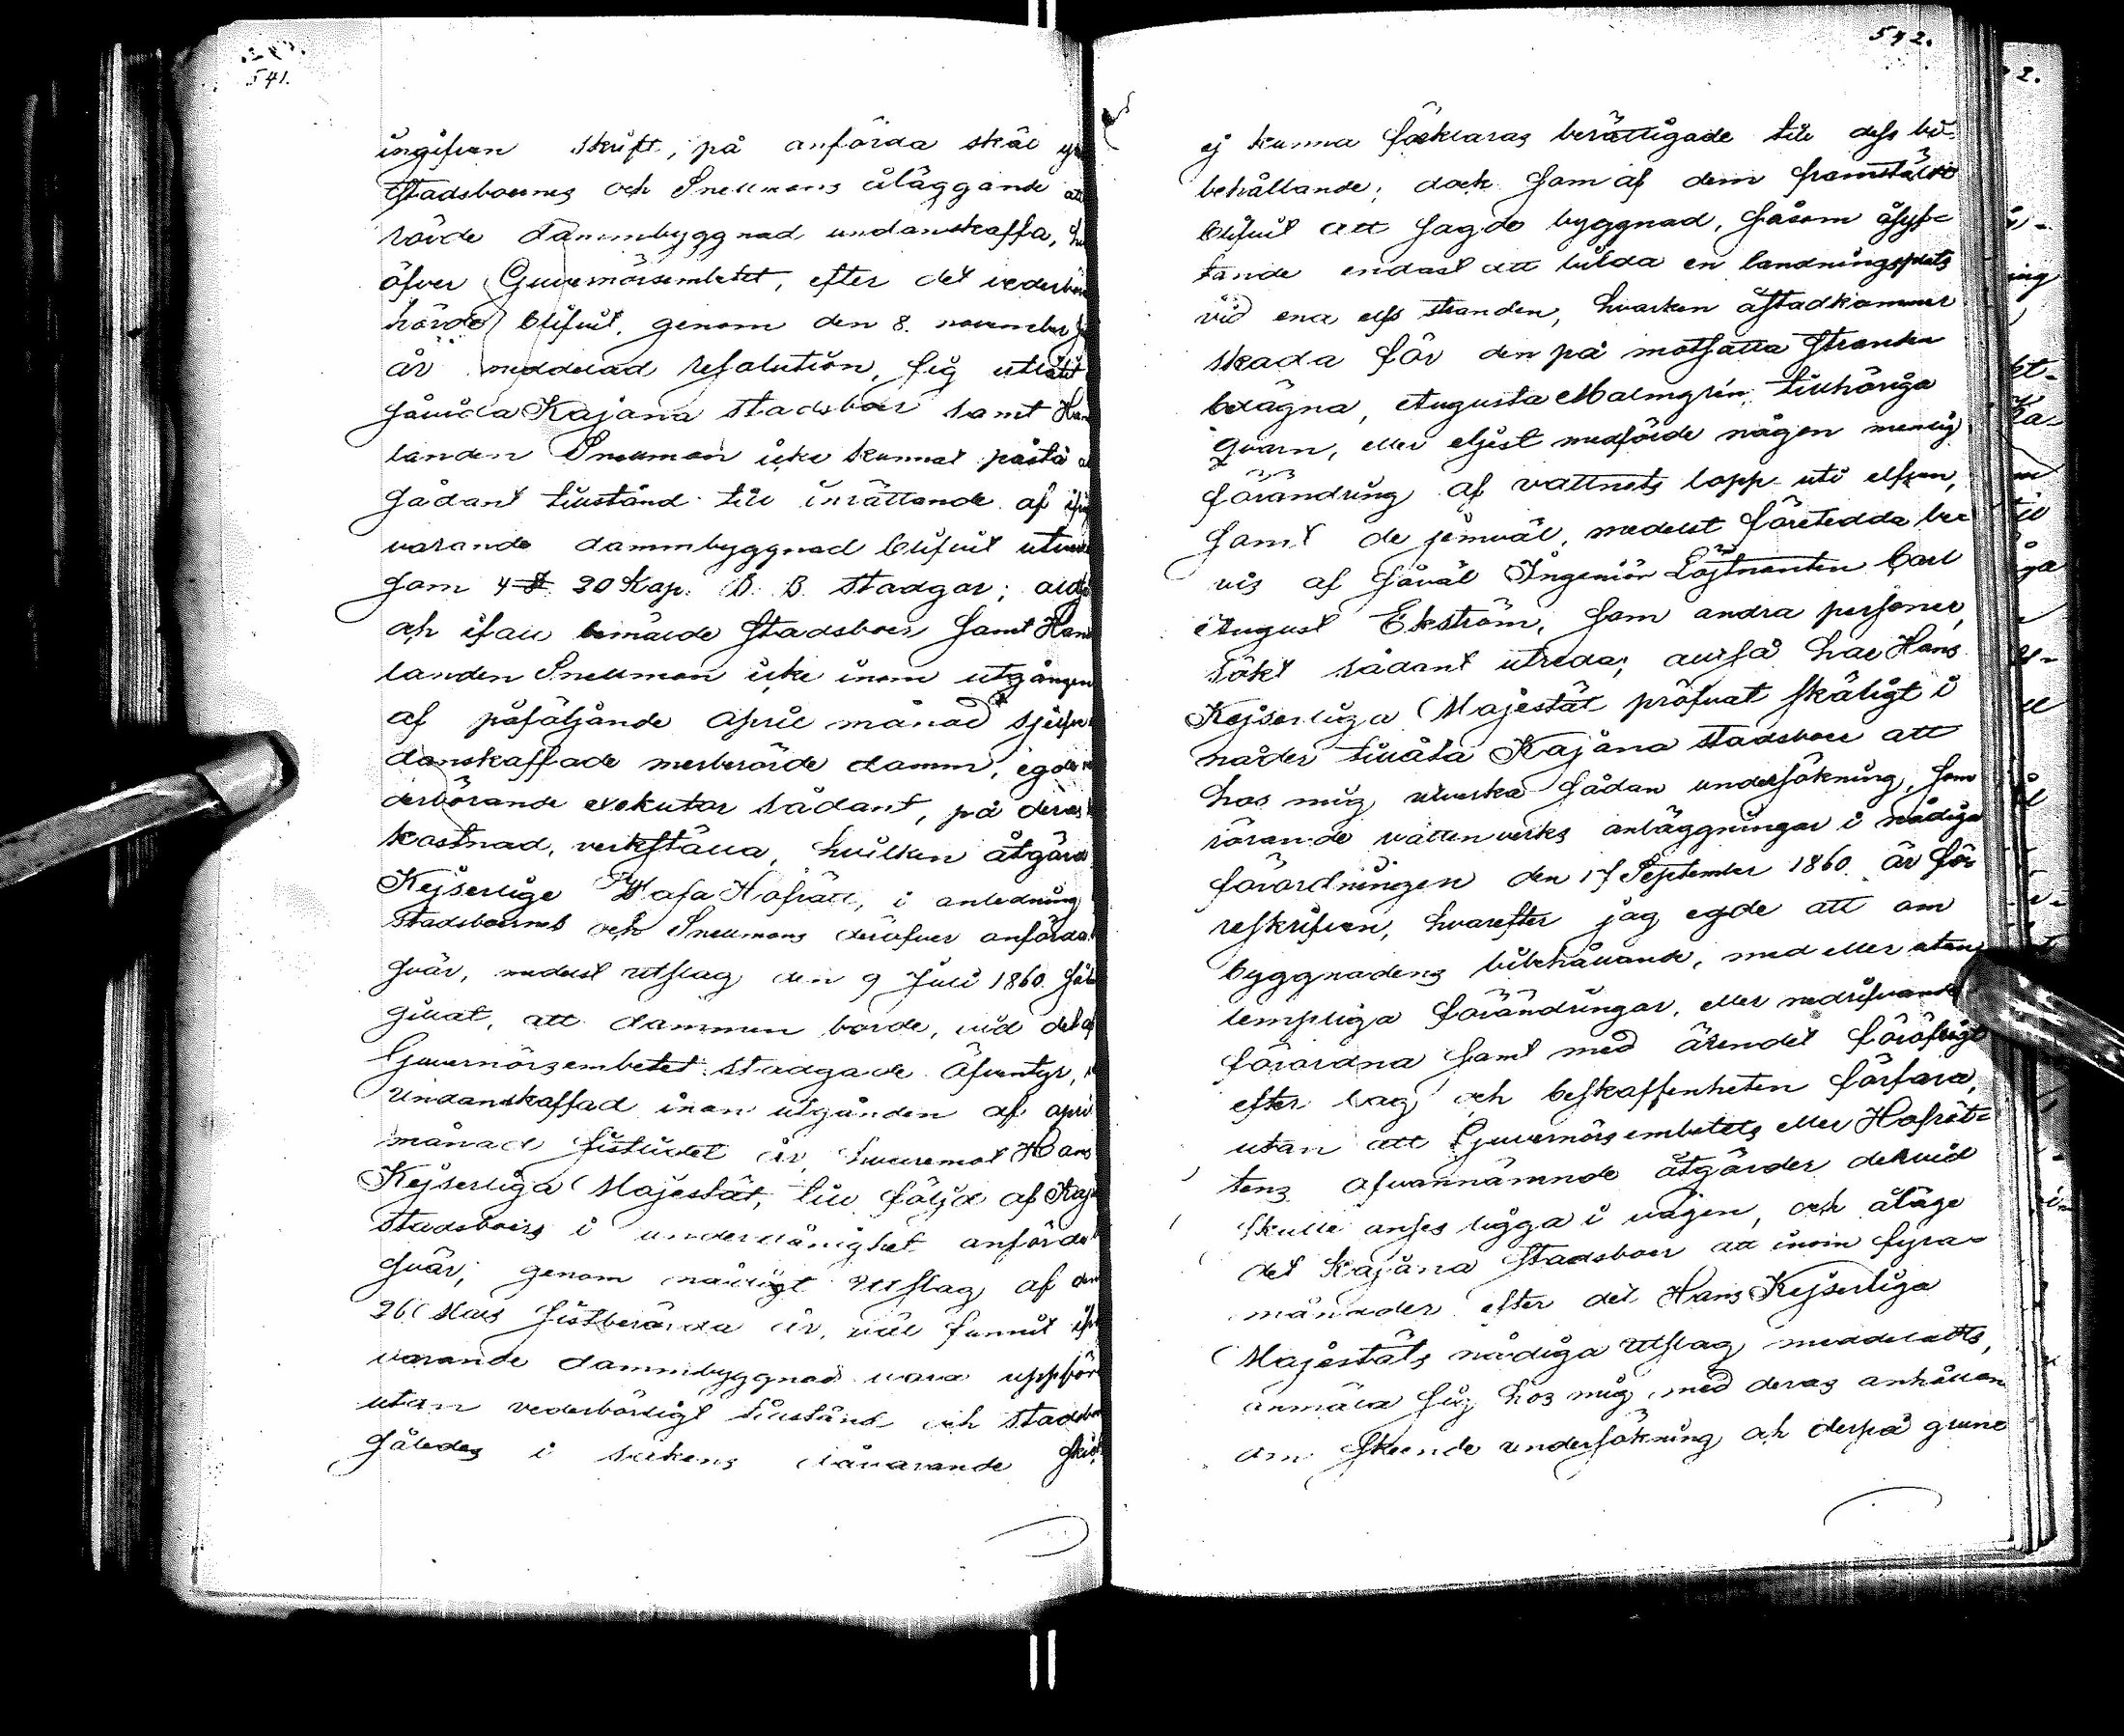 541.
ingifven skrift, på anförda skäl
stadsboernes och Snellmans åläggande
rörde dammbyggnad undanskaffa,
öfver Guvernörsembetet, efter det vederbör
hörde blifvit, genom den 8. november
år meddelad resolution, sig utlåtit
såvida Kajana stadsboer samt Han
landen Snellman icke kunnat påstå
sådant tillstånd till inrättande af ifrå
varande dammbyggnad blifvit utver
som 4 § 20 Kap. B. B. stadgar;
och ifall bemälde stadsboer samt Han
landen Snellman icke inom utgången
af påföljande April månad sjelfve
danskaffade merberörde damm, egde
derbörande exekutor sådant, på deras
kostnad, verkställa, hvilken åtgärd
Kejserlige Wasa Hofrätt, i anledning
stadsboernes och Snellmans deröfver anförda
svär, medelst utslag den 9 Juli 1860
gillat, att dammen borde, vid det af
Guvernörsembetet stadgade äfventyr,
undanskaffad inan utgånden af april
månad sistlidet år, hvaremot Hans
Kejserliga Majestät, till följd af Kaja
stadsboers i underdånighet anförde
svär, genom nådigt utslag af den
26 Mars sistberörda år, väl funnit ifrå
varande dammbyggnad vara uppför
utan vederbörligt tillstånd och stadsbo
således i sakens dåvarande skic
542.
ej kunna förklaras berättigade till dess bi-
behållande; dock som af dem framstäldt
blifvit att sagde byggnad, såsom åsyf-
tande endast att bilda en landningsplats
vid ena elfs stranden, hvarken åstadkommer
skada för den på motsatta stranden
belägna, Augusta Malmgrén tillhöriga
qvarn, eller eljest medförde någon menlig
förändring af vattnets lopp uti elfven,
samt de jemväl, medelst företedda be-
vis af såväl Ingeniör Löjtnanten Carl
August Ekström, som andra personer,
sökt sådant utreda; alltså har Hans
Kejserliga Majestät pröfvat skäligt i
nåder tillåta Kajana stadsboer att
hos mig utverka sådan undersökning, som
rörande vattenverks anläggningar i nådiga
förordningen den 17 September 1860 är för
reskrifven, hvarefter jag egde att om
byggnadens bibehållande, med eller utan
lempliga förändringar, eller nedrifvande
förordna samt med ärendet föröfrigt
efter lag och beskaffenheten förfara,
utan att Guvernörsembetets eller Hofrät-
tens ofvannämnde åtgärder dervid
skulle anses ligga i vägen, och ålåge
det Kajana stadsboer att inom fyra
månader efter det Hans Kejserliga
Majestäts nådiga utslag meddelatts,
anmäla sig hos mig med deras anhållan
om skeende undersökning och derpå grund